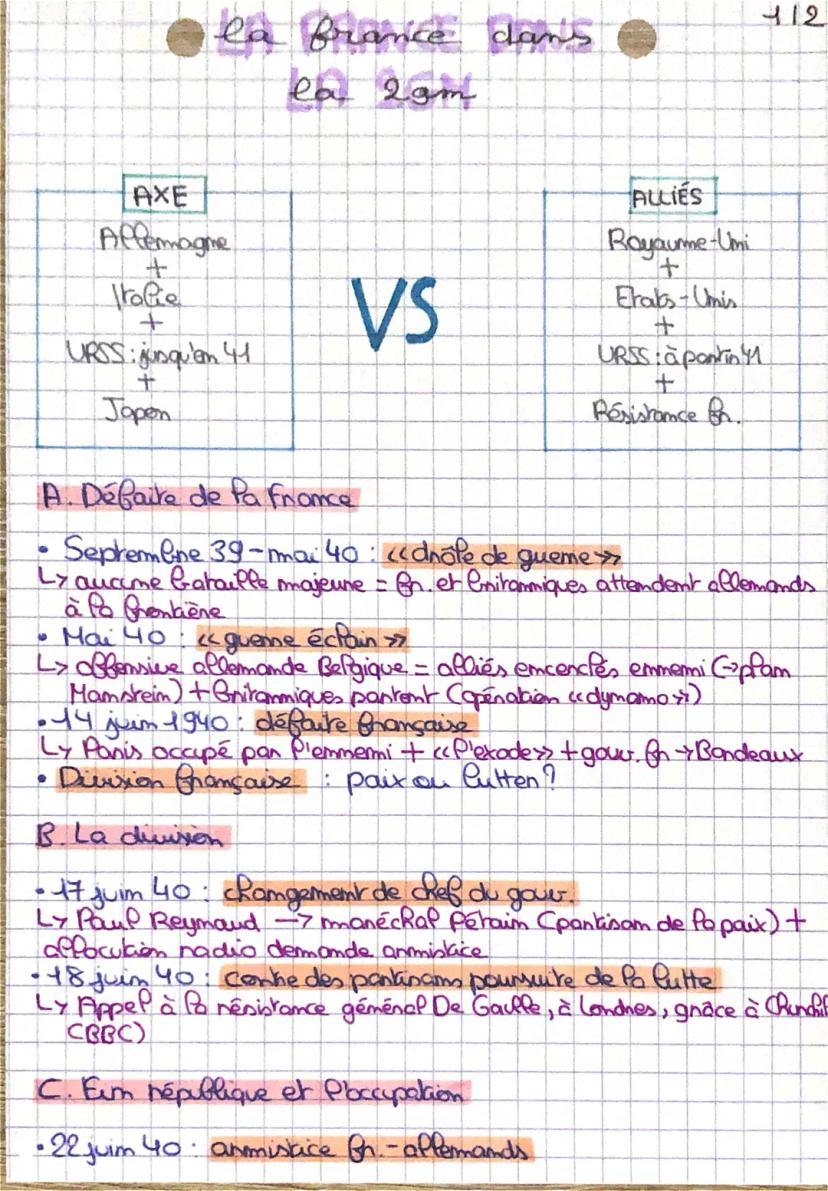 1/2
la france dans
la 2gm
AXE
Allemagne
+
Italie
+
URSS : jusqu'en 41
+
Japon
VS
ALLIÉS
Royaume-Uni
+
Etats-Unis
+
URSS : à partir 41
+
Résistance fr.
A. Défaite de la France
• Septembre 39 - mai 40 : «drôle de guerre»
↳ aucune bataille majeure = fr. et britanniques attendent allemands
à la frontière
• Mai 40 : «guerre éclair»
↳ offensive allemande Belgique = alliés encerclés ennemi (→ plan
Manstein) + Britanniques partent (opération «dynamo»)
• 14 juin 1940 : défaite française
↳ Paris occupé par l'ennemi + «l'exode» + gouv. fr → Bordeaux
• Division française : paix ou lutter ?
B. La division
• 17 juin 40 : changement de chef du gouv.
↳ Paul Reynaud → maréchal Pétain (partisan de la paix) +
allocution radio demande armistice
• 18 juin 40 : contre des partisans poursuite de la lutte
↳ Appel à la résistance général De Gaulle, à Londres, grâce à Churchil
(BBC)
C. Fin république et l'occupation
• 22 juin 40 : armistice fr. - allemands